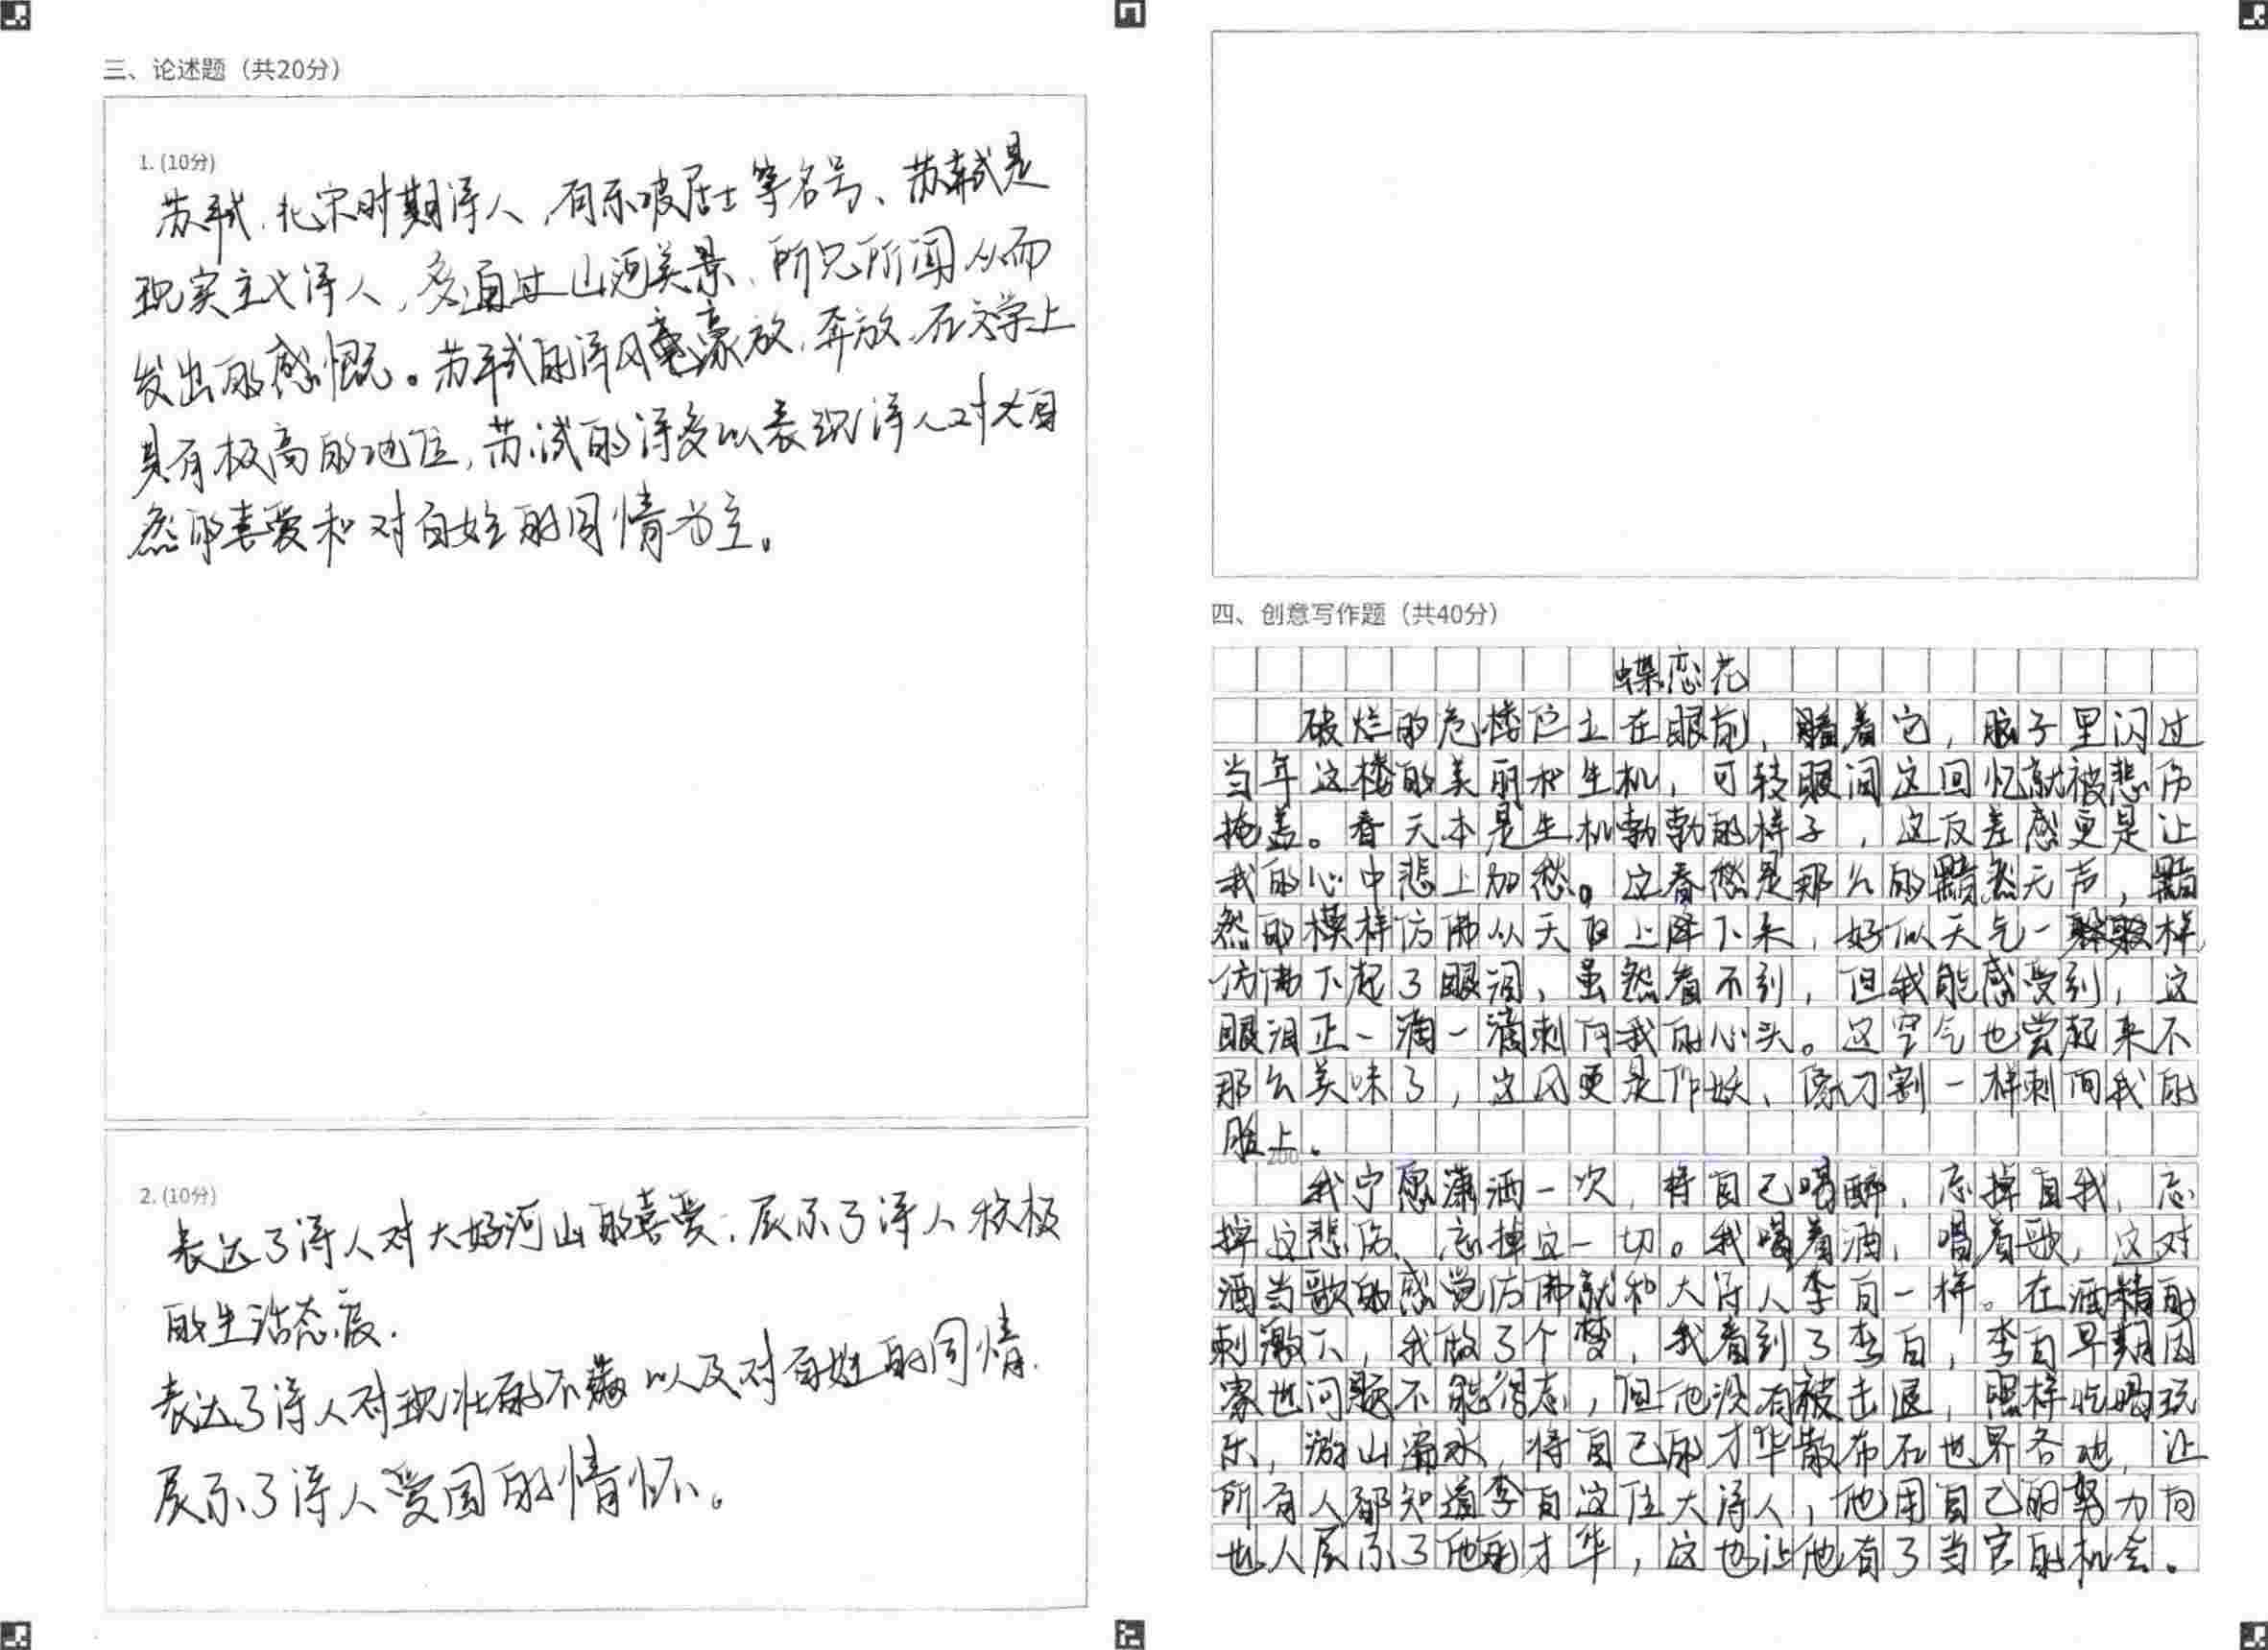 三、论述题（共20分）
1. (10分)
苏轼，北宋时期诗人，有东坡居士等名号、苏轼是
现实主义诗人，多通过山河美景、所见所闻从而
发出的感慨。苏轼的诗风豪放，奔放，在文学上
具有极高的地位，苏试的诗多以表现诗人对大自
然的喜爱和对百姓的同情为主。
2. (10分)
表达了诗人对大好河山的喜爱；展示了诗人积极
的生活态度.
表达了诗人对现壮的不满以及对百姓的同情.
展示了诗人爱国的情怀。
四、创意写作题（共40分）
蝶恋花
破烂的危楼伫立在眼前，瞧着它，脑子里闪过
当年这楼的美丽和生机，可转眼间这回忆就被悲伤
掩盖。春天本是生机勃勃的样子，这反差感更是让
我的心中悲上加愁。这春愁是那么的黯然无声，黯
然的模样仿佛从天上降下来，好似天气一般样，
仿佛下起了眼泪，虽然看不到，但我能感受到，这
眼泪正一滴一滴刺向我的心头。这空气也尝起来不
那么美味了，这风更是作妖、像刀割一样刺向我的
脸上。
200
我宁愿潇洒一次，将自己喝醉，忘掉自我，忘
掉这悲伤、忘掉这一切。我喝着酒，唱着歌，这对
酒当歌的感觉仿佛就和大诗人李白一样。在酒精的
刺激下，我做了个梦，我看到了李白，李白早期因
家世问题不能得志，但他没有被击退，照样吃喝玩
乐，游山玩水，将自己的才华散布在世界各地，让
所有人都知道李白这位大诗人，他用自己的努力向
世人展示了他的才华，这也让他有了当官的机会。